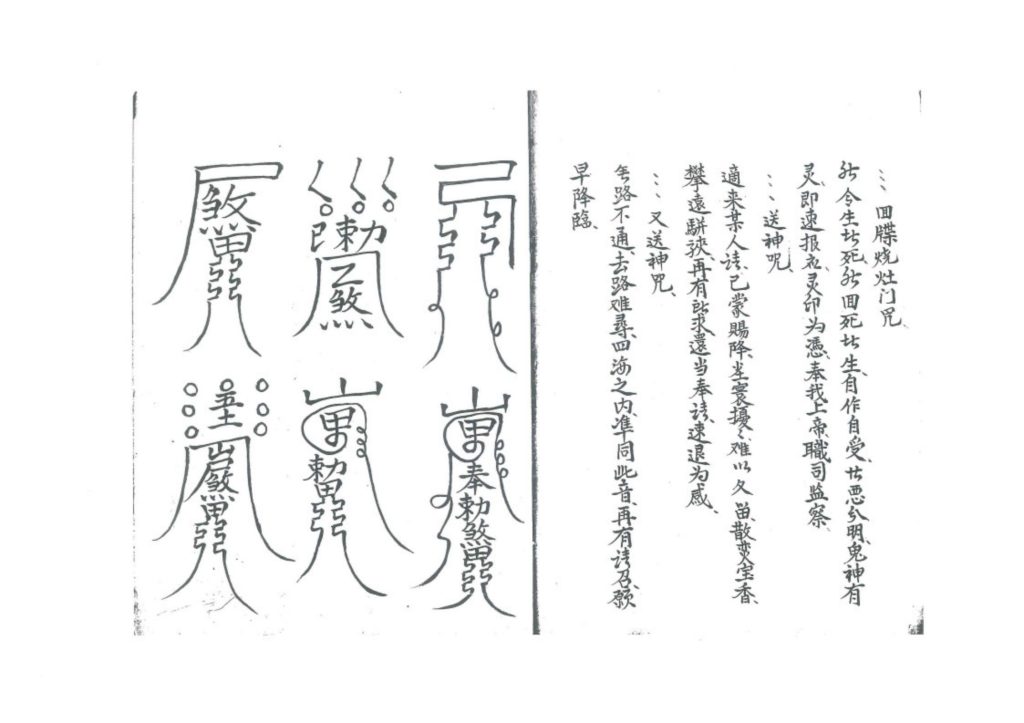 回牒烧灶门咒、
令生死、回死生、自作自受、恶分明、鬼神有
灵、即速报应、灵印为憑、奉我上帝職司监察、
送神呪、
適来某人请、已蒙賜降、尘寰擾々、难以久留、散焚宝香、
攀遠駢、再有所求、還当奉请、速退为感、
又送神咒、
路不通、去路难尋、四海之内、準同此音、再有请召、願
早降臨、
勅煞
煞
奉勅煞
勅
煞